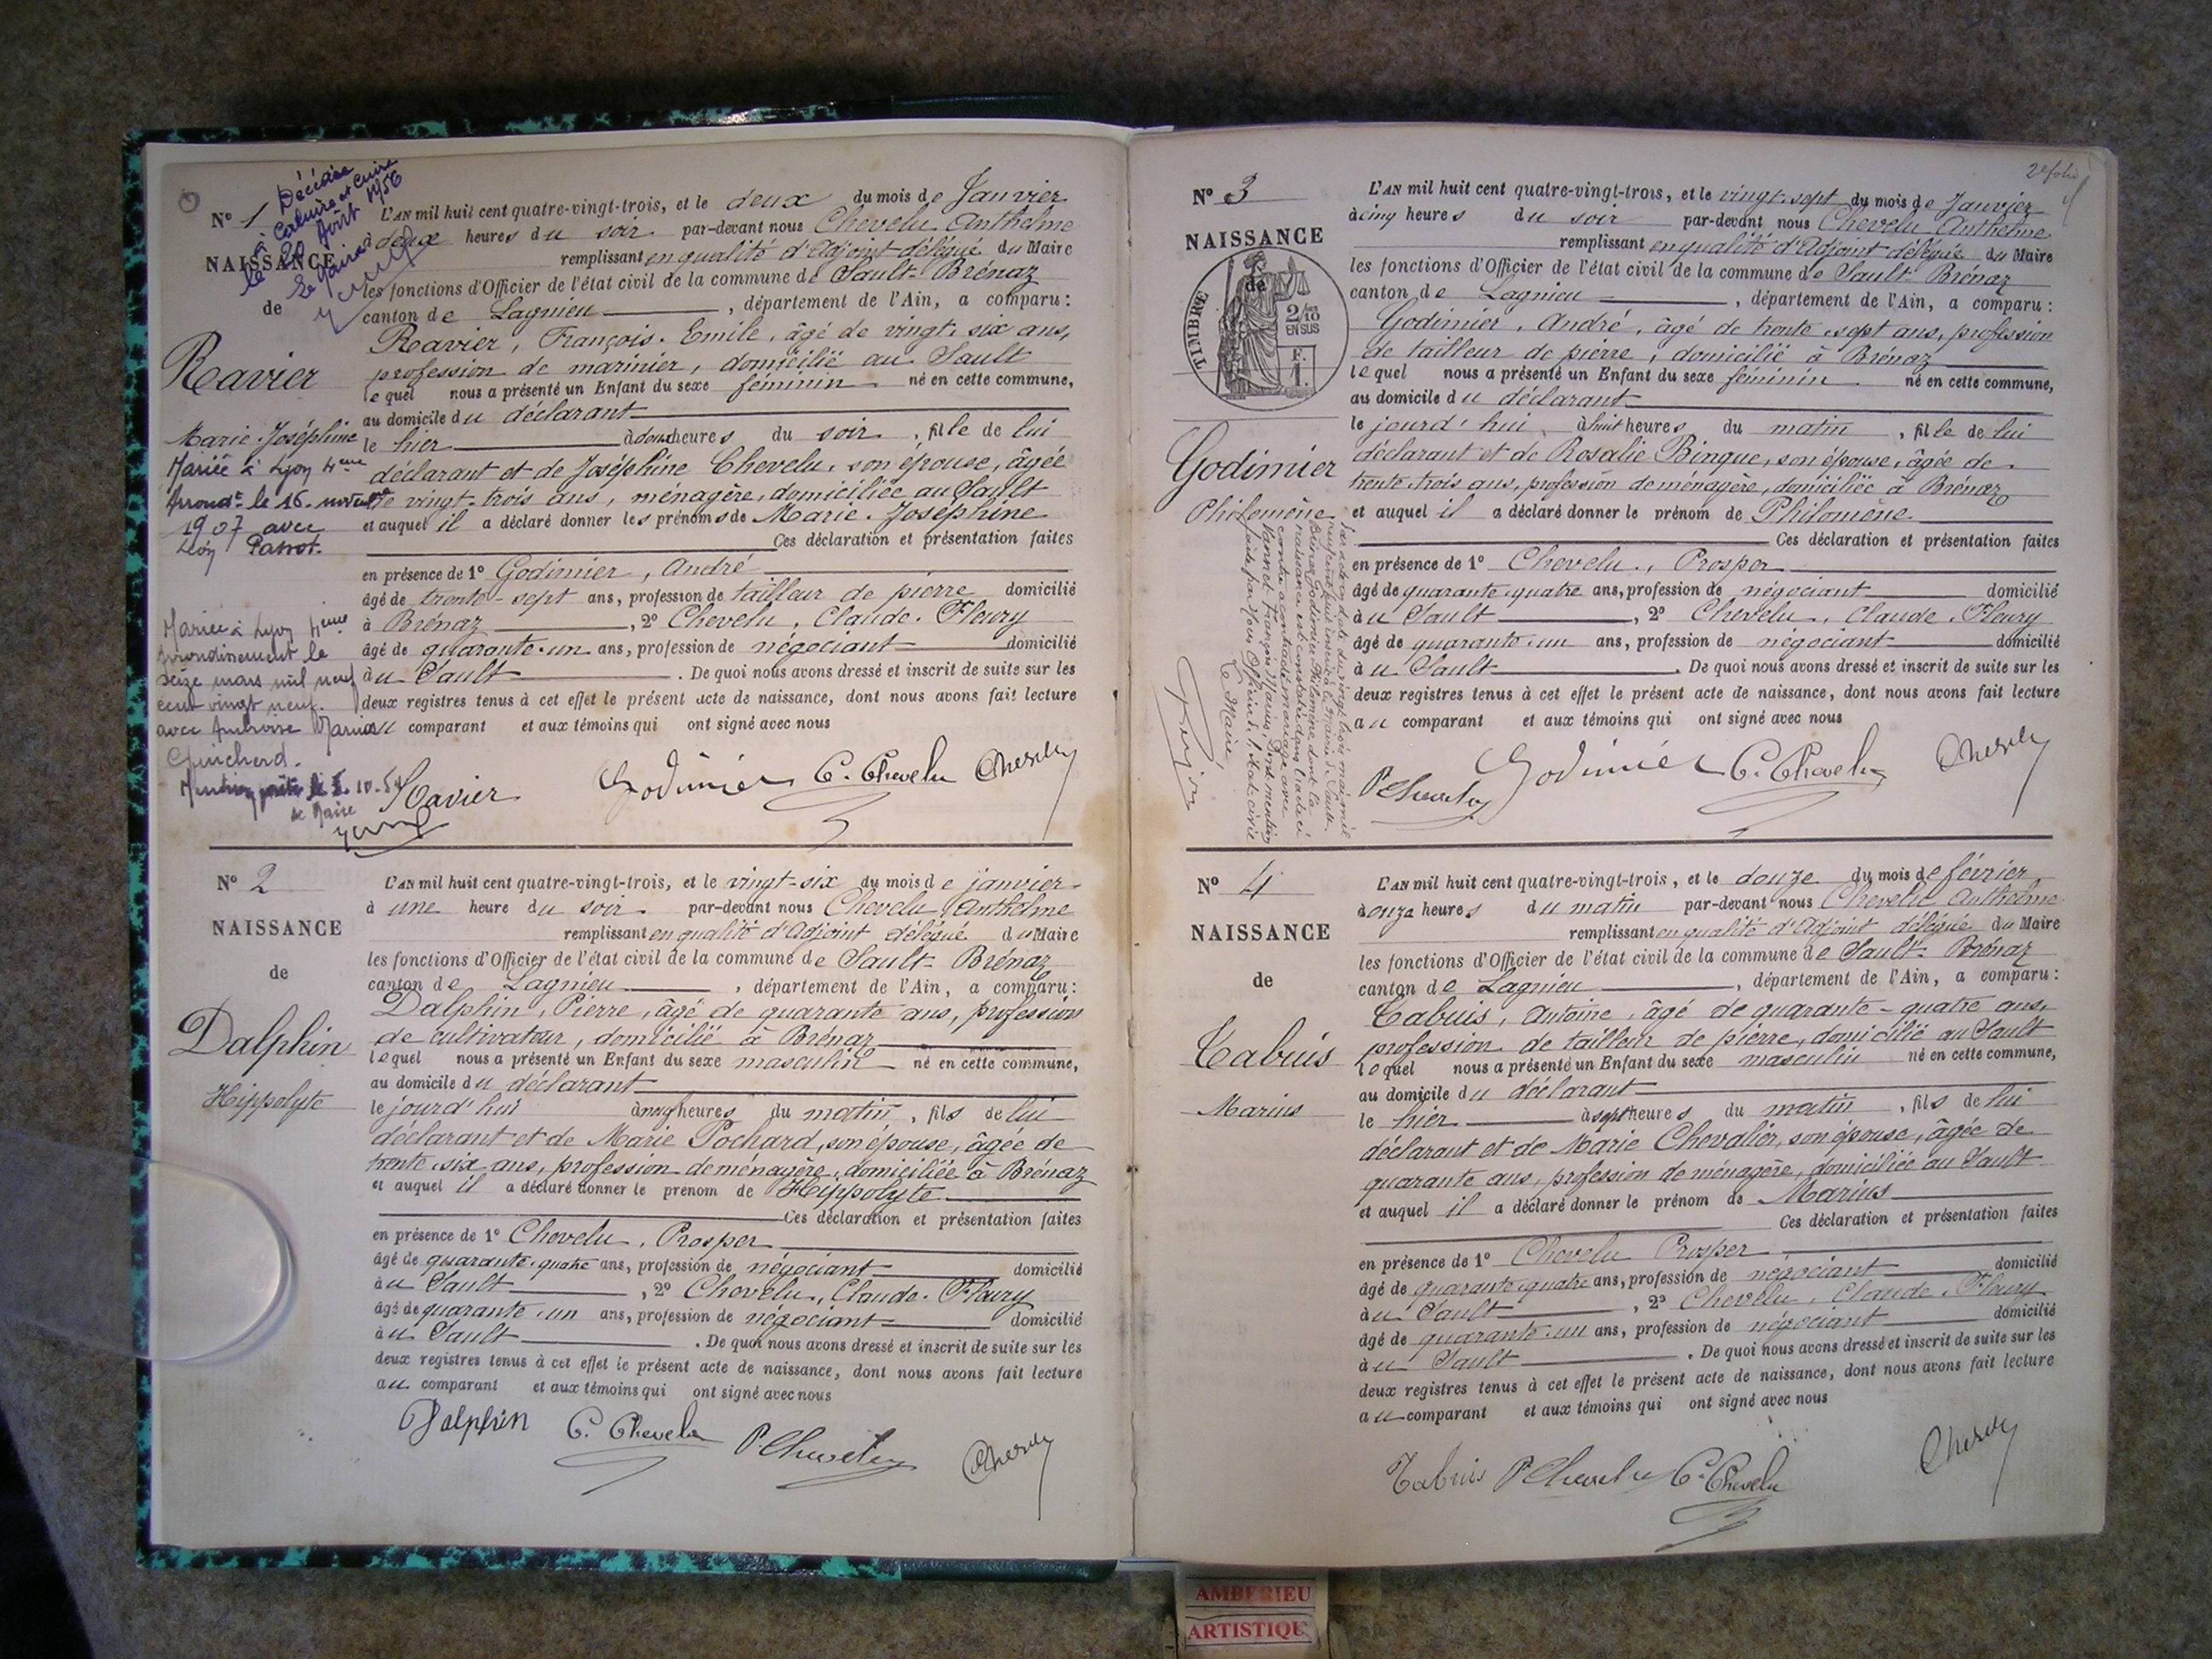 Nº 1
NAISSANCE
de
Ravier
Marie-Joséphine
Décédée
à Caluire et Cuire
le 20 Août 1956
Le Maire
Mariée à Lyon 4eme
Arrondt le 16 novembre
1907 avec
Patrot.
Mariée à Lyon 4eme
arrondissement le
seize mars mil neuf
cent vingt neuf
avec Ambroise Marius
Guichard.
le Maire
L'AN mil huit cent quatre-vingt-trois, et le deux du mois de Janvier
à deux heures du soir par-devant nous Chevelu Anthelme
remplissant en qualité d'Adjoint délégué du Maire
les fonctions d'Officier de l'état civil de la commune de Sault-Brénaz
canton de Lagnieu, département de l'Ain, a comparu:
Ravier, François-Emile, âgé de vingt-six ans,
profession de marinier, domicilié au Sault
lequel nous a présenté un Enfant du sexe féminin né en cette commune,
au domicile du déclarant
le hier à heures du soir, fille de lui
déclarant et de Joséphine Chevelu, son épouse, âgée
de vingt-trois ans, ménagère, domiciliée au Sault
et auquel il a déclaré donner les prénoms de Marie-Joséphine
Ces déclaration et présentation faites
en présence de 1º Godimier, André
âgé de trente-sept ans, profession de tailleur de pierre domicilié
à Brénaz, 2º Chevelu, Claude-Fleury
âgé de quarante-un ans, profession de négociant domicilié
au Sault. De quoi nous avons dressé et inscrit de suite sur les
deux registres tenus à cet effet le présent acte de naissance, dont nous avons fait lecture
au comparant et aux témoins qui ont signé avec nous
Ravier Godimier C. Chevelu Chevelu
Nº 2
NAISSANCE
de
Dalphin
Hippolyte
L'AN mil huit cent quatre-vingt-trois, et le vingt-six du mois de janvier
à une heure du soir par-devant nous Chevelu Anthelme
remplissant en qualité d'Adjoint délégué du Maire
les fonctions d'Officier de l'état civil de la commune de Sault-Brénaz
canton de Lagnieu, département de l'Ain, a comparu:
Dalphin, Pierre, âgé de quarante ans, profession
de cultivateur, domicilié à Brénaz
lequel nous a présenté un Enfant du sexe masculin né en cette commune,
au domicile du déclarant
le jourd'hui à heures du matin, fils de lui
déclarant et de Marie Pochard, son épouse, âgée de
trente-six ans, profession de ménagère, domiciliée à Brénaz
et auquel il a déclaré donner le prénom de Hippolyte
Ces déclaration et présentation faites
en présence de 1º Chevelu, Prosper
âgé de quarante-quatre ans, profession de négociant domicilié
au Sault, 2º Chevelu, Claude-Fleury
âgé de quarante-un ans, profession de négociant domicilié
au Sault. De quoi nous avons dressé et inscrit de suite sur les
deux registres tenus à cet effet le présent acte de naissance, dont nous avons fait lecture
au comparant et aux témoins qui ont signé avec nous
Dalphin C. Chevelu P Chevelu Chevelu
2e folio
Nº 3
NAISSANCE
de
TIMBRE
2/10
EN SUS
F.
1.
Godimier
Philomène
L'AN mil huit cent quatre-vingt-trois, et le vingt-sept du mois de Janvier
à cinq heures du soir par-devant nous Chevelu Anthelme
remplissant en qualité d'Adjoint délégué du Maire
les fonctions d'Officier de l'état civil de la commune de Sault-Brénaz
canton de Lagnieu, département de l'Ain, a comparu:
Godimier, André, âgé de trente-sept ans, profession
de tailleur de pierre, domicilié à Brénaz
lequel nous a présenté un Enfant du sexe féminin né en cette commune,
au domicile du déclarant
le jourd'hui à huit heures du matin, fille de lui
déclarant et de Rosalie Binque, son épouse, âgée de
trente-trois ans, profession de ménagère, domiciliée à Brénaz
et auquel il a déclaré donner le prénom de Philomène
Ces déclaration et présentation faites
en présence de 1º Chevelu, Prosper
âgé de quarante-quatre ans, profession de négociant domicilié
au Sault, 2º Chevelu, Claude-Fleury
âgé de quarante-un ans, profession de négociant domicilié
au Sault. De quoi nous avons dressé et inscrit de suite sur les
deux registres tenus à cet effet le présent acte de naissance, dont nous avons fait lecture
au comparant et aux témoins qui ont signé avec nous
P Chevelu Godimier C. Chevelu Chevelu
Par acte en date du vingt trois mai mil
Brénaz Godimier Philomène dont la
naissance est constatée dans l'acte ci
contre a contracté mariage avec
François Marius. Dont mention
faite par nous Officier de l'état civil
Le Maire
Nº 4
NAISSANCE
de
Tabuis
Marius
L'AN mil huit cent quatre-vingt-trois, et le douze du mois de février
à onze heures du matin par-devant nous Chevelu Anthelme
remplissant en qualité d'Adjoint délégué du Maire
les fonctions d'Officier de l'état civil de la commune de Sault-Brénaz
canton de Lagnieu, département de l'Ain, a comparu:
Tabuis, Antoine, âgé de quarante-quatre ans,
profession de tailleur de pierre, domicilié au Sault
lequel nous a présenté un Enfant du sexe masculin né en cette commune,
au domicile du déclarant
le hier à sept heures du matin, fils de lui
déclarant et de Marie Chevalier, son épouse, âgée de
quarante ans, profession de ménagère, domiciliée au Sault
et auquel il a déclaré donner le prénom de Marius
Ces déclaration et présentation faites
en présence de 1º Chevelu Prosper
âgé de quarante-quatre ans, profession de négociant domicilié
au Sault, 2º Chevelu, Claude-Fleury
âgé de quarante-un ans, profession de négociant domicilié
au Sault. De quoi nous avons dressé et inscrit de suite sur les
deux registres tenus à cet effet le présent acte de naissance, dont nous avons fait lecture
au comparant et aux témoins qui ont signé avec nous
Tabuis P Chevelu C. Chevelu Chevelu
AMBERIEU
ARTISTIQU